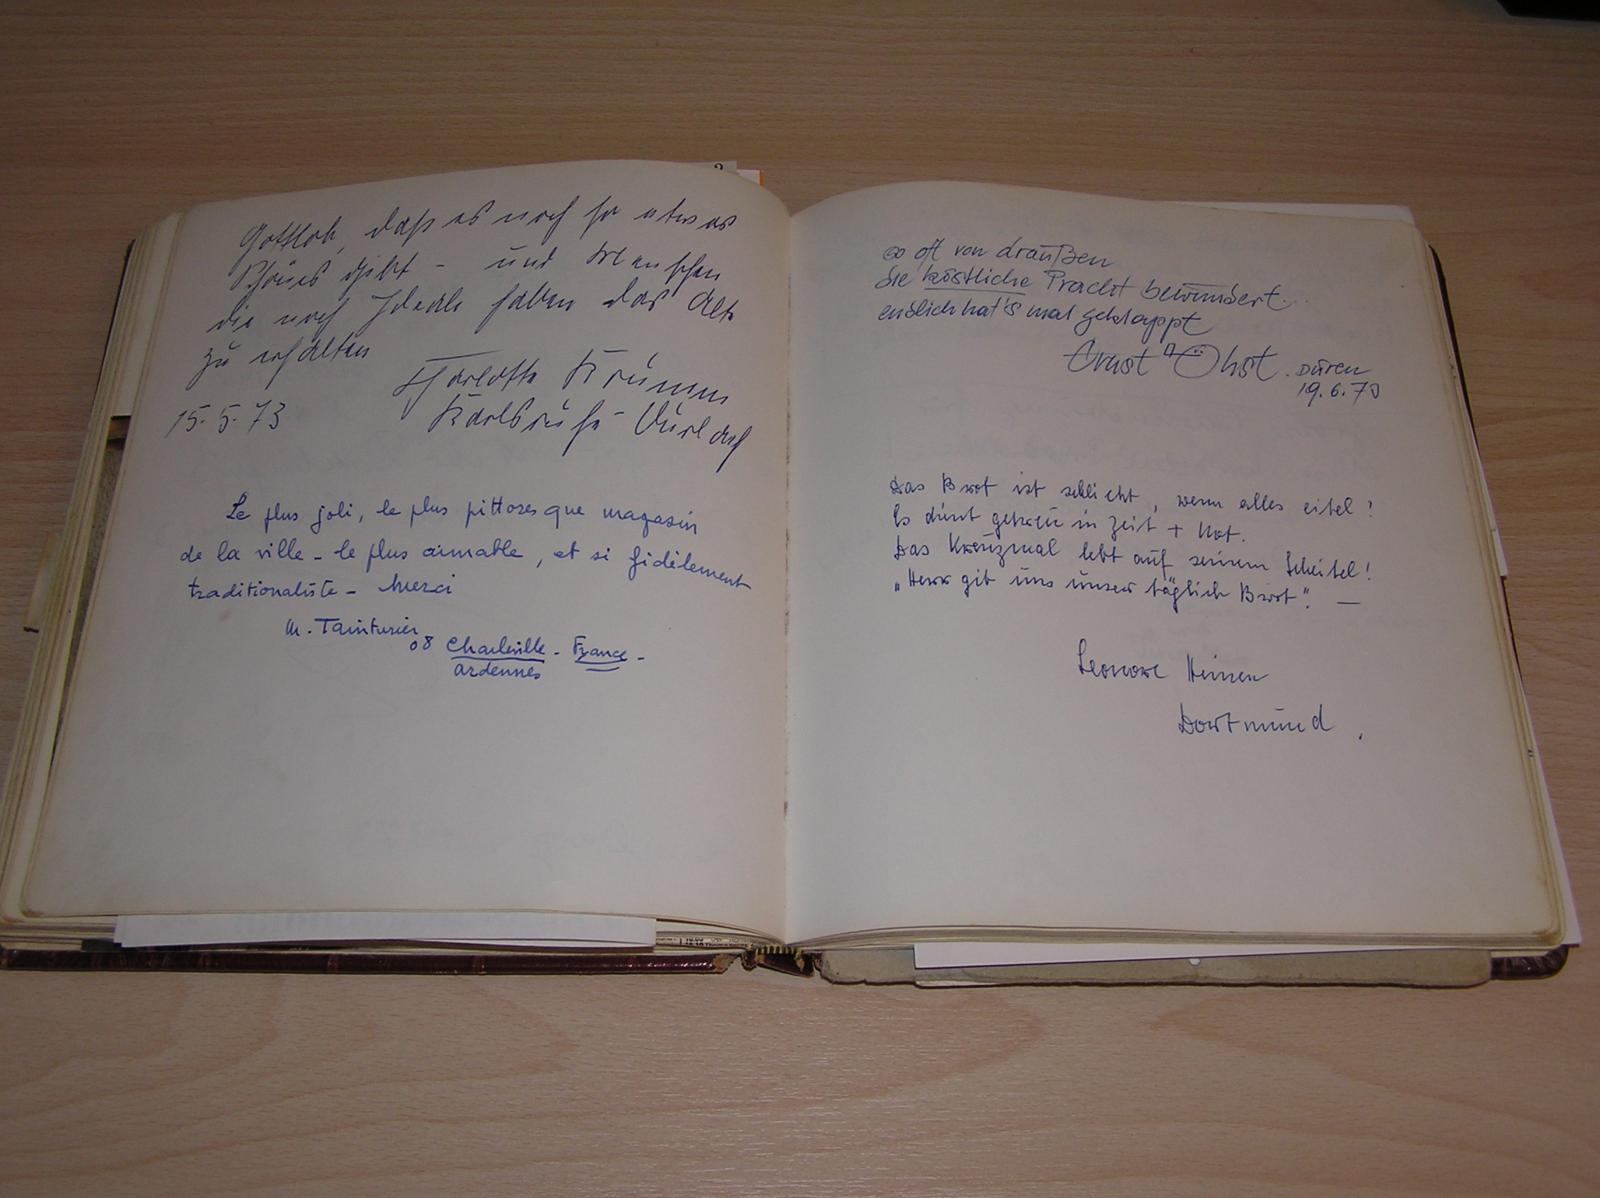 Gottlob, daß es noch so etwas
Schönes gibt - und Menschen
die noch Ideale haben das Alte
zu erhalten
Charlotte Krumm
15.5.73
Karlsruhe - Durlach
Le plus joli, le plus pittoresque magasin
de la ville - le plus aimable, et si fidèlement
traditionaliste - Merci
M. Tainturier
08 Charleville - France -
ardennes
so oft von draußen
die köstliche Pracht bewundert..
endlich hat's mal geklappt
Ernst Obst. Düren
19.6.73
Das Brot ist schlicht, wenn alles eitel!
Es dient getreu in Zeit + Not.
Das Kreuzmal lebt auf seinem Scheitel!
„Herr gib uns unser täglich Brot". —
Leonore Heinen
Dortmund.